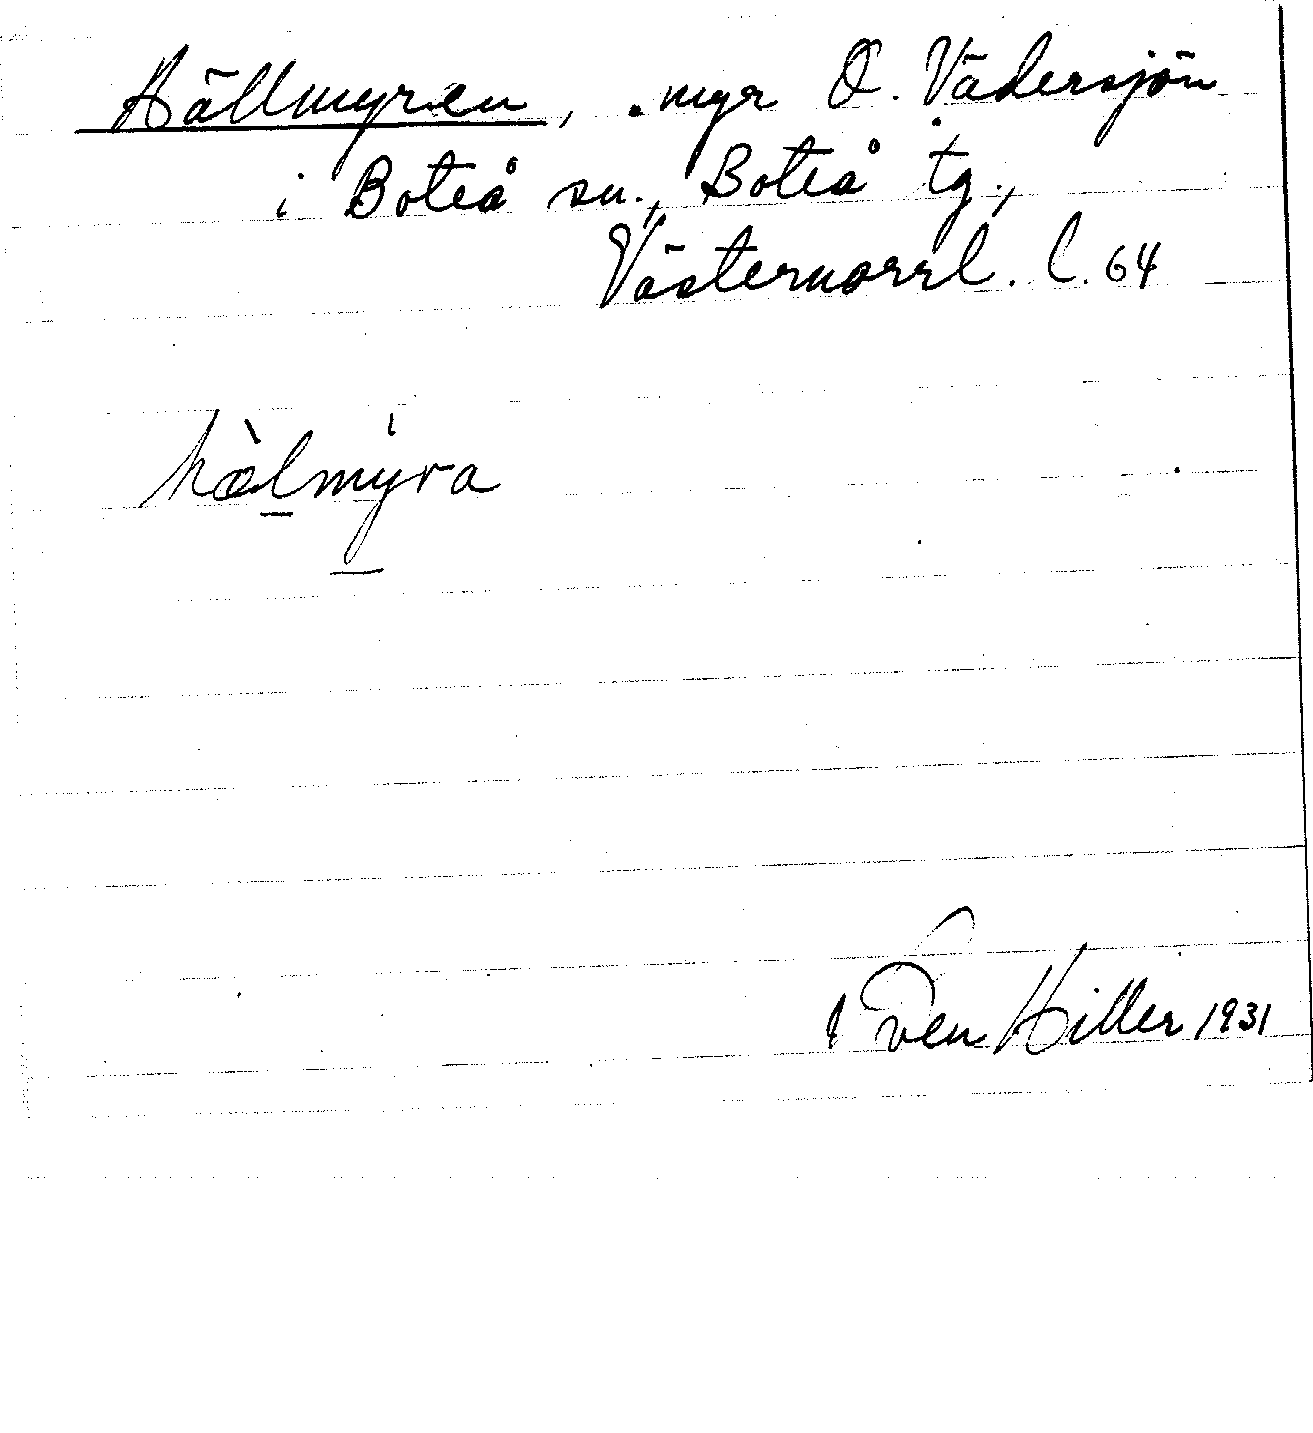 Hällmyren, myr O. Vädersjön
i Boteå sn., Boteå tg.,
Västernorrl. l. 64
hælmyra
Sven Hiller 1931